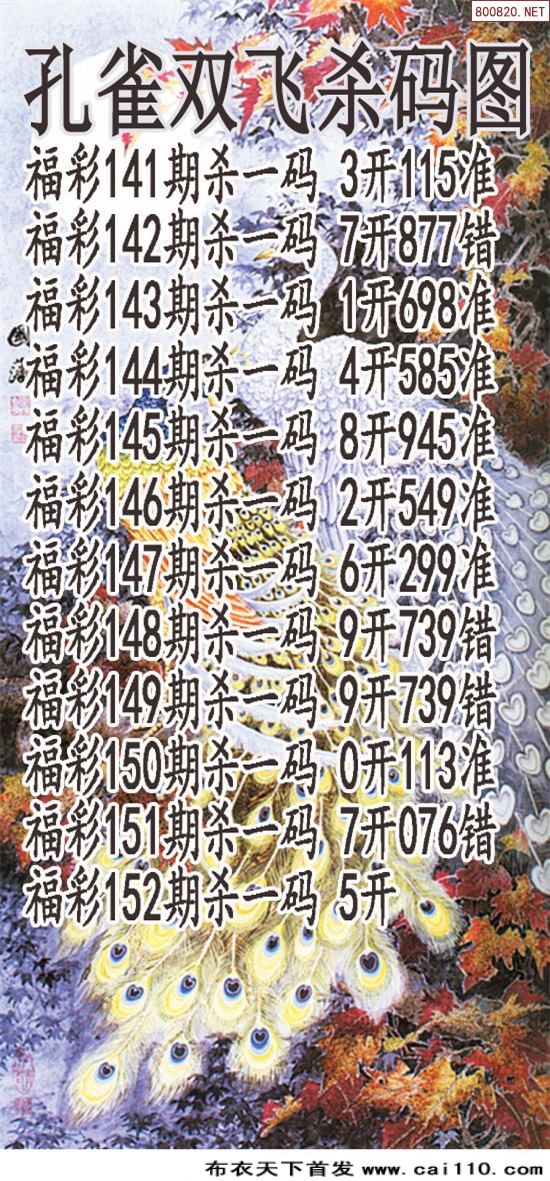 800820.NET
孔雀双飞杀码图
福彩141期杀一码 3开115准
福彩142期杀一码 7开877错
福彩143期杀一码 1开698准
福彩144期杀一码 4开585准
福彩145期杀一码 8开945准
福彩146期杀一码 2开549准
福彩147期杀一码 6开299准
福彩148期杀一码 9开739错
福彩149期杀一码 9开739错
福彩150期杀一码 0开113准
福彩151期杀一码 7开076错
福彩152期杀一码 5开
布衣天下首发 www.cai110.com